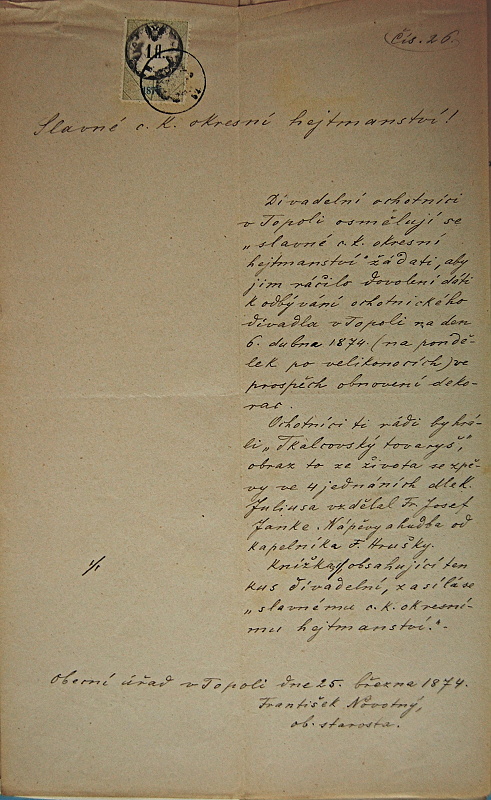 Čís. 26.
1 fl.
187
Slavné c. k. okresní hejtmanství!
Divadelní ochotníci
v Topoli osmělují se
„slavné c. k. okresní
hejtmanství" žádati, aby
jim ráčilo dovolení dáti
k odbývání ochotnického
divadla v Topoli na den
6. dubna 1874. (na pondě-
lek po velikonocích) ve
prospěch obnovení deko-
rac.
Ochotníci ti rádi by hrá-
li „Tkalcovský tovaryš,"
obraz to ze života se zpě-
vy ve 4 jednáních dle K.
Juliusa vzdělal Fr. Josef
Janke. Nápěvy a hudba od
kapelníka F. Hrušky.
Knížka obsahující ten
kus divadelní, zasílá se
„slavnému c. k. okresní-
mu hejtmanství." -
Obecní úřad v Topoli dne 25. března 1874.
František Novotný,
ob. starosta.